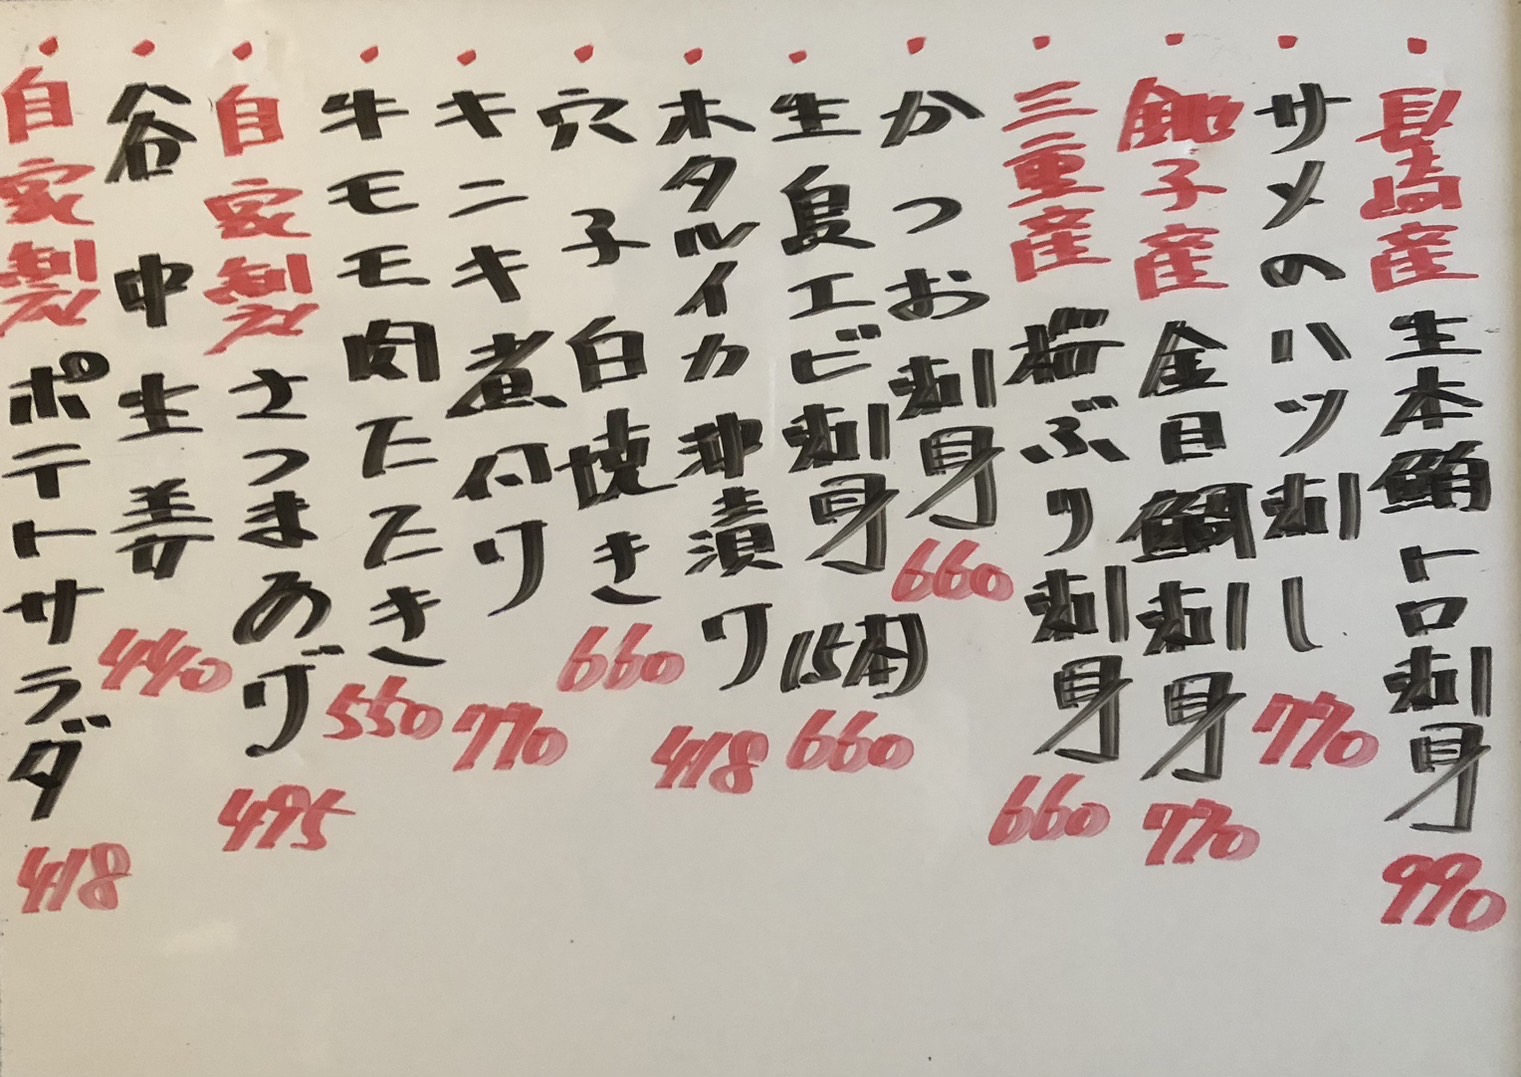 ・長崎産生本鮪トロ刺身 990
・サメのハツ刺し 770
・銚子産金目鯛刺身 770
・三重産桜ぶり刺身 660
・かつお刺身 660
・生食エビ刺身 15本 660
・ホタルイカ沖漬り 418
・穴子白焼き 660
・キニキ煮付り 770
・牛モモ肉たたき 550
・自家製さつまあげ 495
・谷中生姜 440
・自家製ポテトサラダ 418